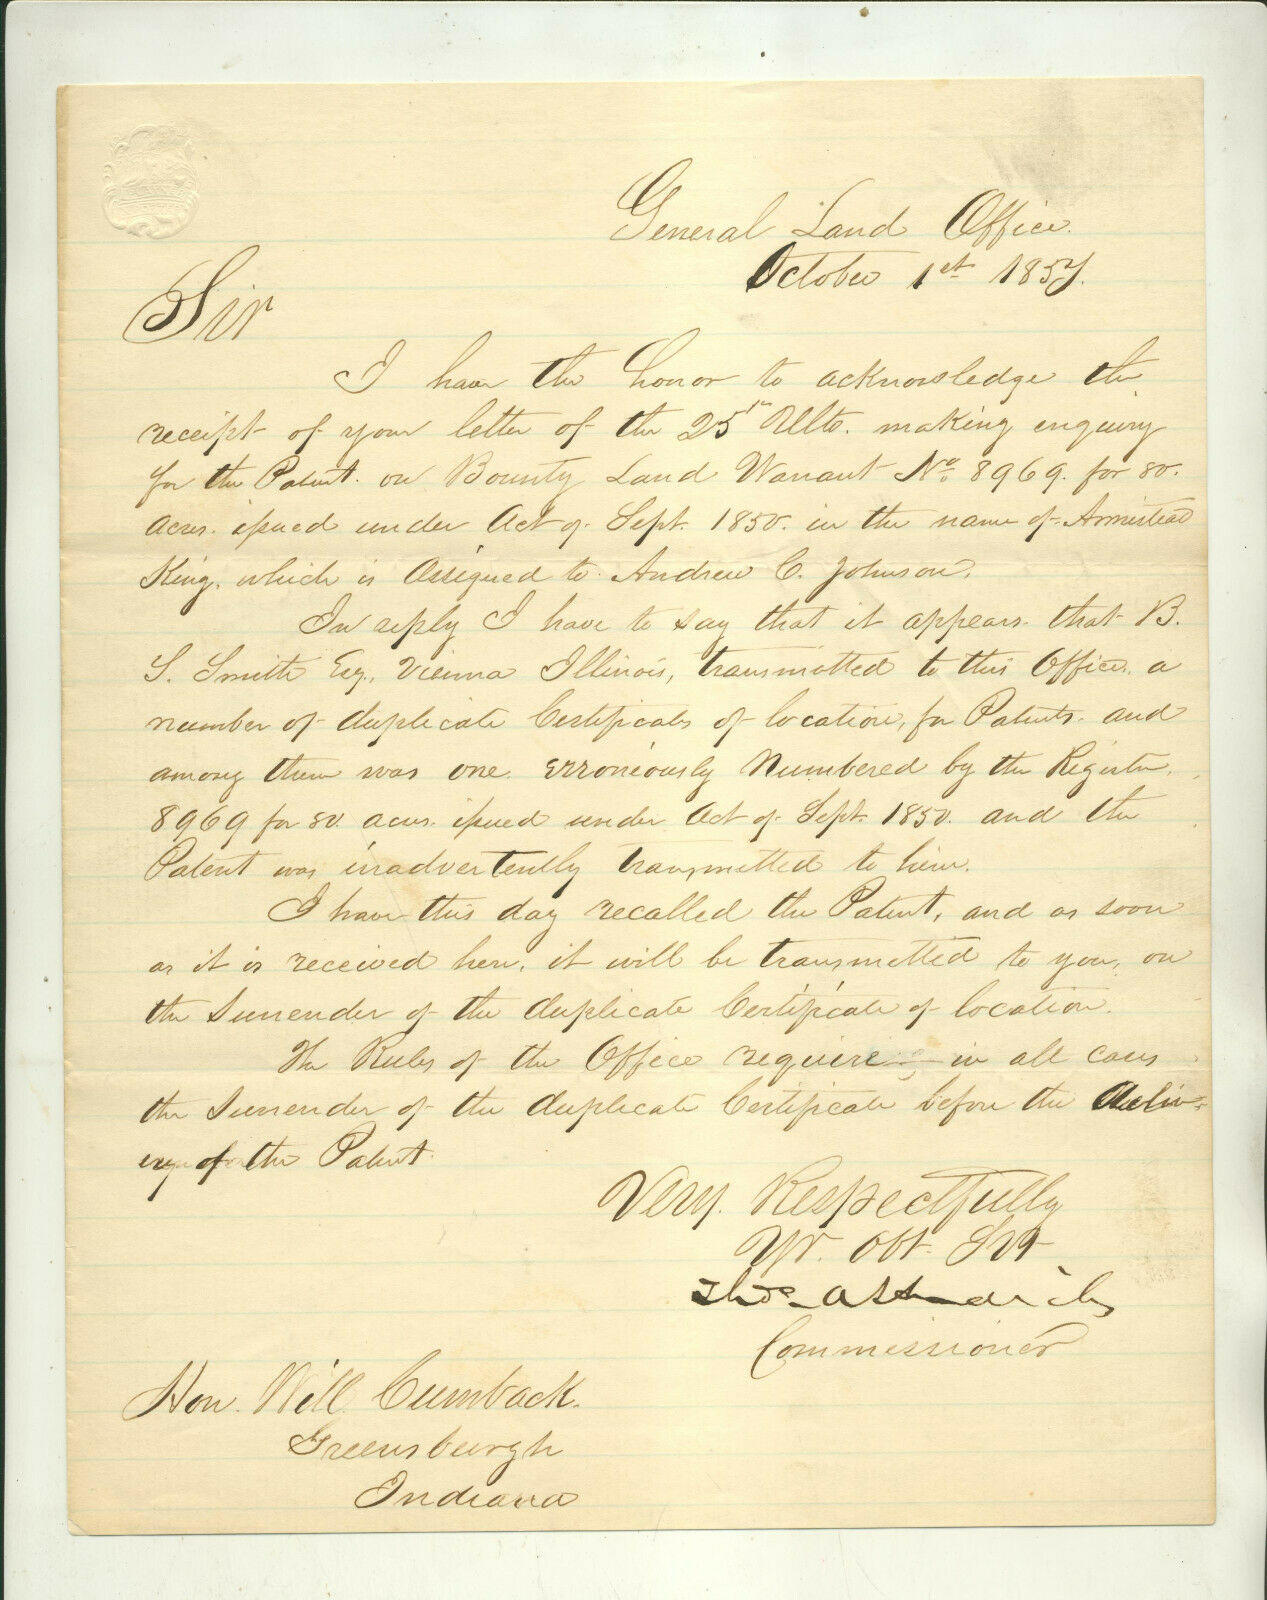 General Land Office.
October 1st 1857.
Sir
I have the honor to acknowledge the
receipt of your letter of the 25th Ulto. making enquiry
for the Patent. on Bounty Land Warrant No. 8969. for 80.
acres. issued under Act of Sept. 1850. in the name of Armistead
King, which is assigned to Andrew C. Johnson.
In reply I have to say that it appears that B.
S. Smith Esq., Vienna Illinois, transmitted to this Office, a
number of duplicate Certificates of location, for Patents. and
among them was one. erroneously Numbered by the Register.
8969 for 80. acres. issued under Act of Sept. 1850. and the
Patent was inadvertently transmitted to him.
I have this day recalled the Patent, and as soon
as it is received here, it will be transmitted to you, on
the Surrender of the duplicate Certificate of location.
The Rules of the Office require in all cases
the Surrender of the duplicate Certificate before the deliv-
ery of the Patent.
Very Respectfully
Yr. Obt. Svt
Thos. A Hendricks
Commissioner
Hon. Will Cumback.
Greensburgh
Indiana